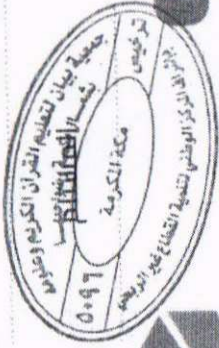 جمعية بيان لتعليم القرآن الكريم وعلومه
مكة المكرمة
ترخيص
٥٠٩٦
المركز الوطني لتنمية القطاع غير الربحي